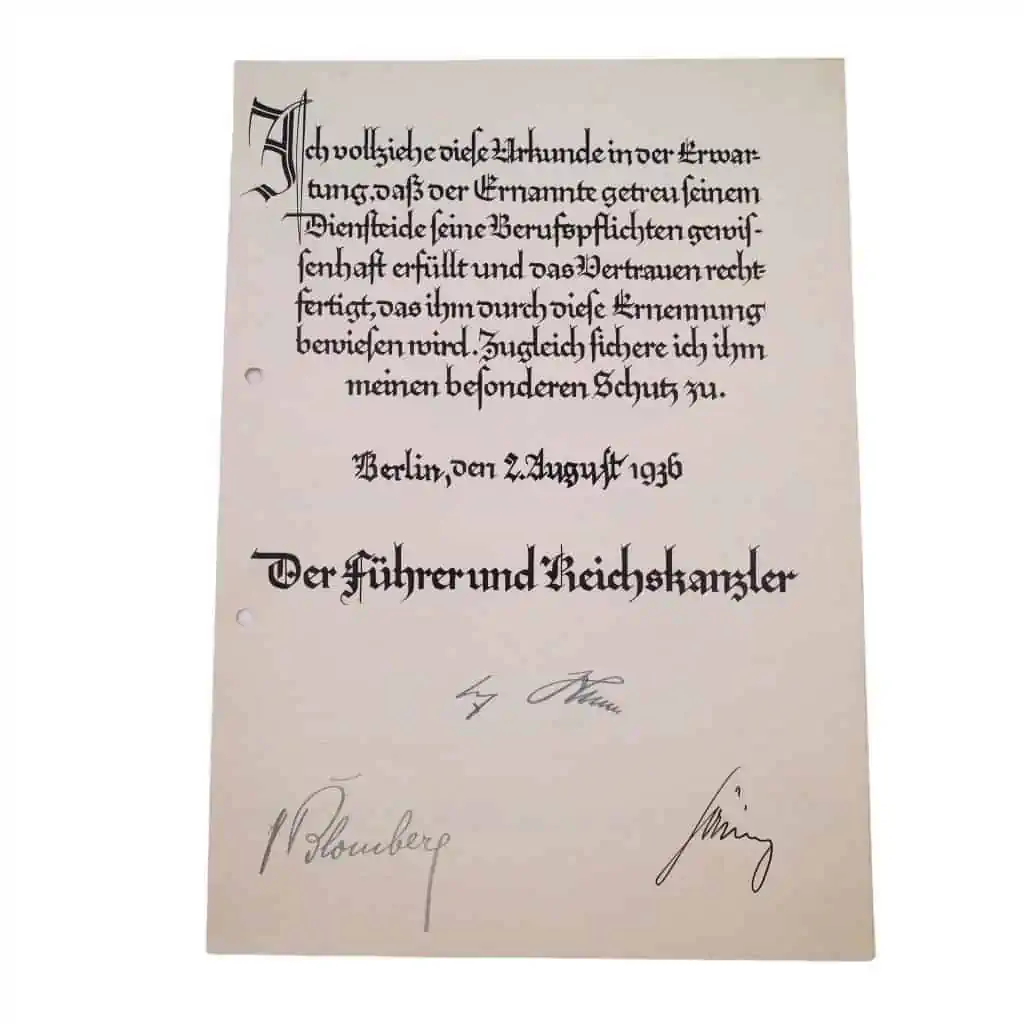 Ich vollziehe diese Urkunde in der Erwar-
tung, daß der Ernannte getreu seinem
Diensteide seine Berufspflichten gewis-
senhaft erfüllt und das Vertrauen recht-
fertigt, das ihm durch diese Ernennung
bewiesen wird. Zugleich sichere ich ihm
meinen besonderen Schutz zu.
Berlin, den 2. August 1936
Der Führer und Reichskanzler
Blomberg Göring